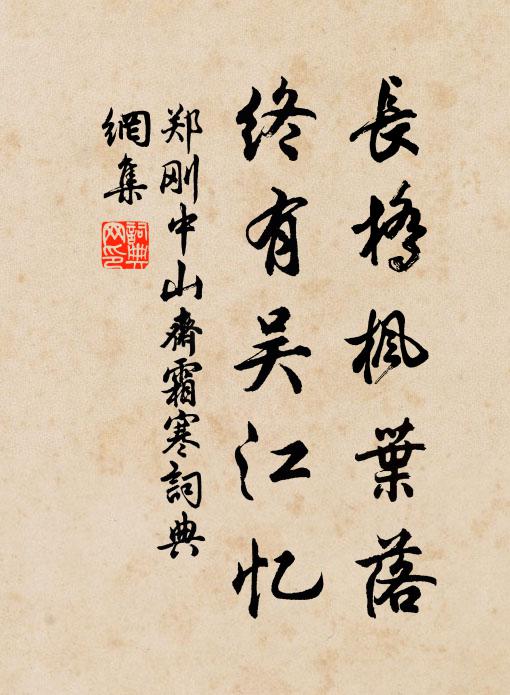 長橋楓葉落
终有吴江忆
郑刚中山齋霜寒詞典
網集
詞典
网印